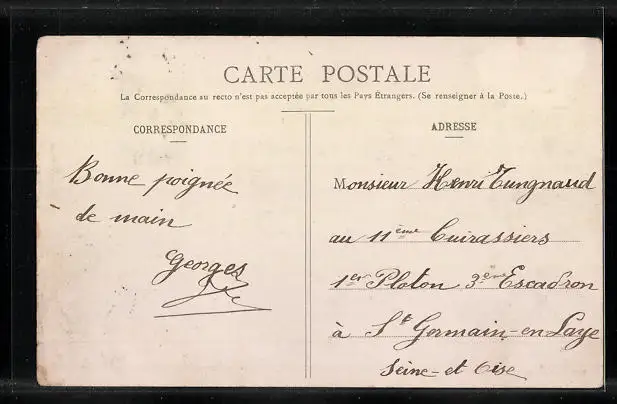 CARTE POSTALE
La Correspondance au recto n'est pas acceptée par tous les Pays Étrangers. (Se renseigner à la Poste.)
CORRESPONDANCE
Bonne poignée
de main
Georges
ADRESSE
Monsieur Henri Tungnaud
au 11ème Cuirassiers
1er Ploton 3ème Escadron
à St Germain-en-Laye
Seine-et Oise